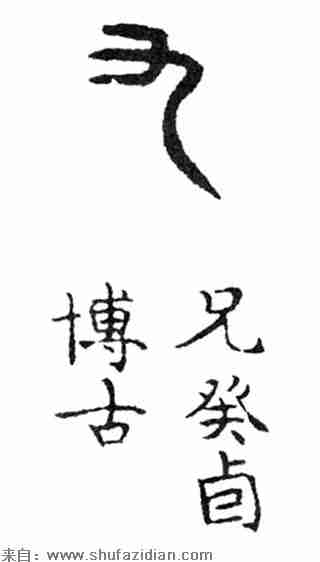 兄癸卣
博古
来自：www.shufazidian.com